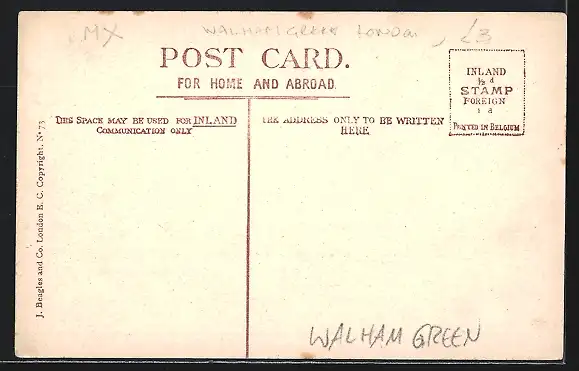 MX WALHAM GREEN LONDON £3
POST CARD.
FOR HOME AND ABROAD.
INLAND
½ d
STAMP
FOREIGN
1 d
PRINTED IN BELGIUM
THIS SPACE MAY BE USED FOR INLAND
COMMUNICATION ONLY
THE ADDRESS ONLY TO BE WRITTEN
HERE
J. Beagles and Co. London E. C. Copyright. Nº 73
WALHAM GREEN